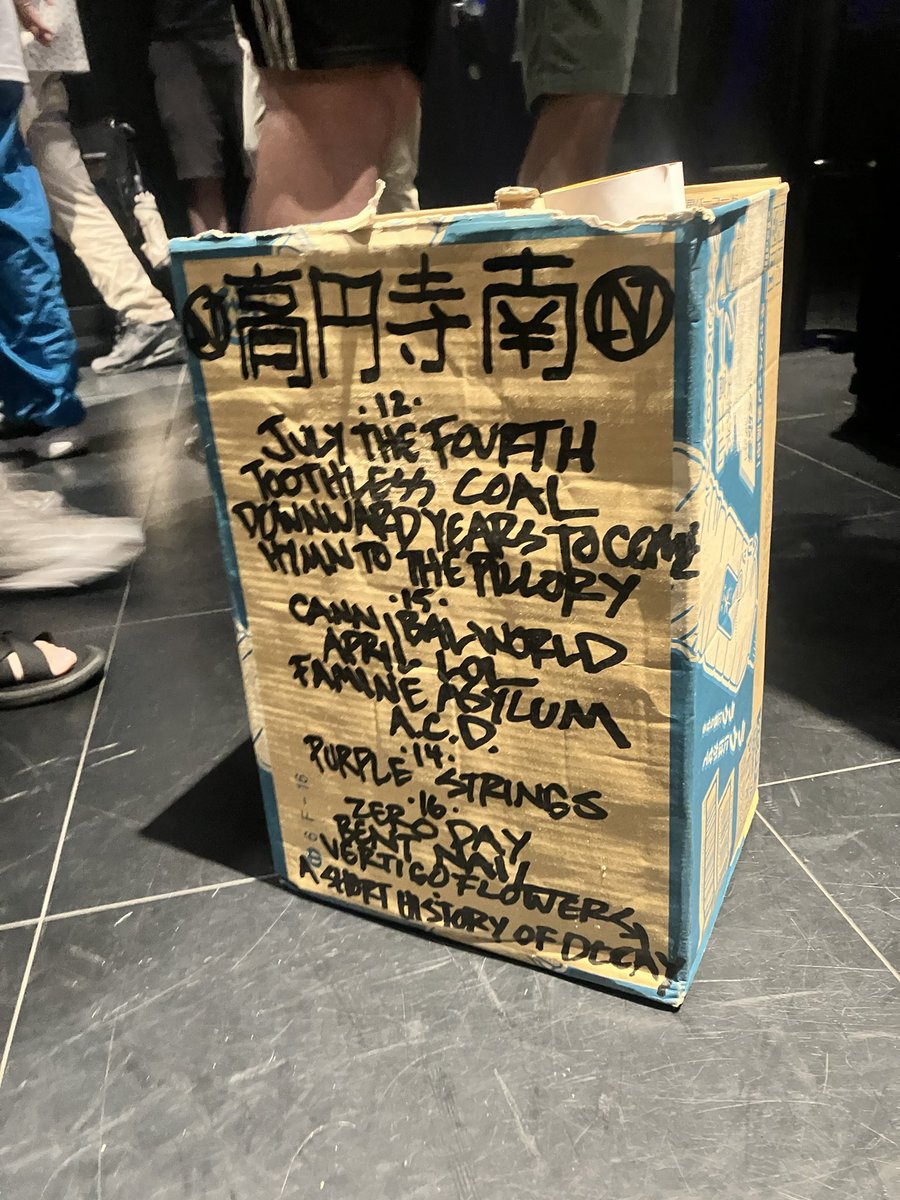 N 高円寺南 N
·12·
JULY THE FOURTH
TOOTHLESS COAL
DOWNWARD YEARS TO COME
HYMN TO THE PILLORY
·15·
CANNIBAL WORLD
APRIL LOL
FAMINE ASYLUM
A.C.D.
·14·
PURPLE STRINGS
·16·
ZERO DAY
BENT NAIL
VERTIGO FLOWERS
A SHORT HISTORY OF DECAY
6 F - 16